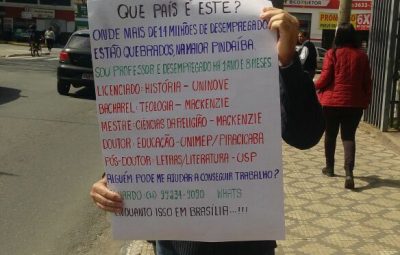 QUE PAÍS É ESTE?
ONDE MAIS DE 14 MILHÕES DE DESEMPREGADO
ESTÃO QUEBRADOS, NA MAIOR PINDAÍBA.
SOU PROFESSOR E DESEMPREGADO HÁ 1 ANO E 8 MESES
LICENCIADO: HISTÓRIA - UNINOVE
BACHAREL: TEOLOGIA - MACKENZIE
MESTRE: CIÊNCIAS DA RELIGIÃO - MACKENZIE
DOUTOR: EDUCAÇÃO - UNIMEP/PIRACICABA
PÓS-DOUTOR: LETRAS/LITERATURA - USP
ALGUÉM PODE ME AJUDAR A CONSEGUIR TRABALHO?
WHATS
ENQUANTO ISSO EM BRASÍLIA...!!!
PROM
6X